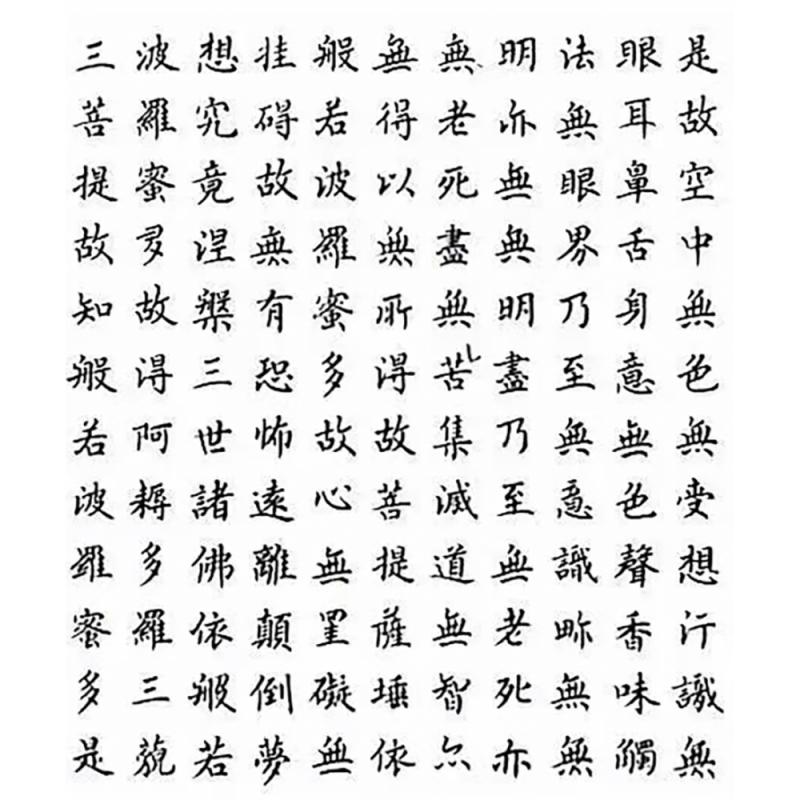 是故空中無色無受想行識無
眼耳鼻舌身意無色聲香味觸
法無眼界乃至無意識界無無
明亦無無明盡乃至無老死亦
無老死盡無苦集滅道無智亦
無得以無所得故菩提薩埵依
般若波羅蜜多故心無罣礙無
挂碍故無有恐怖遠離顛倒夢
想究竟涅槃三世諸佛依般若
波羅蜜多故得阿耨多羅三藐
三菩提故知般若波羅蜜多是